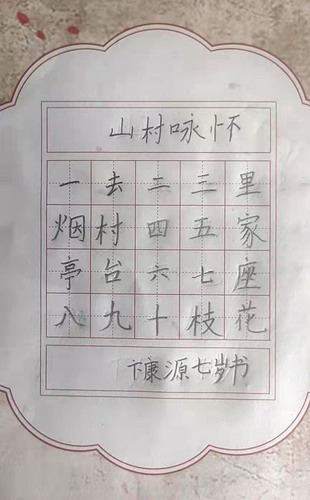 山村咏怀
一去二三里
烟村四五家
亭台六七座
八九十枝花
卞康源七岁书